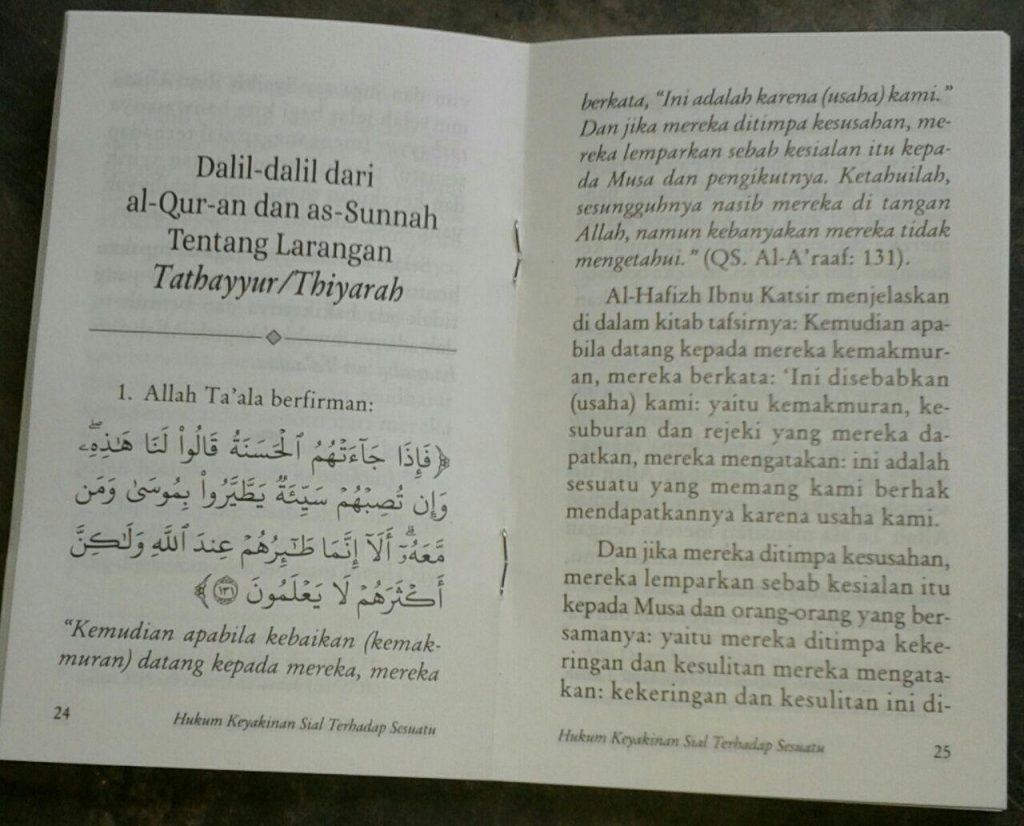 Dalil-dalil dari
al-Qur-an dan as-Sunnah
Tentang Larangan
Tathayyur/Thiyarah
1. Allah Ta'ala berfirman:
﴿فَإِذَا جَآءَتْهُمُ ٱلْحَسَنَةُ قَالُوا۟ لَنَا هَـٰذِهِۦ ۖ
وَإِن تُصِبْهُمْ سَيِّئَةٌ يَطَّيَّرُوا۟ بِمُوسَىٰ وَمَن
مَّعَهُۥٓ ۗ أَلَآ إِنَّمَا طَـٰٓئِرُهُمْ عِندَ ٱللَّهِ وَلَـٰكِنَّ
أَكْثَرَهُمْ لَا يَعْلَمُونَ ١٣١﴾
“Kemudian apabila kebaikan (kemak-
muran) datang kepada mereka, mereka
24
Hukum Keyakinan Sial Terhadap Sesuatu
berkata, “Ini adalah karena (usaha) kami.”
Dan jika mereka ditimpa kesusahan, me-
reka lemparkan sebab kesialan itu kepa-
da Musa dan pengikutnya. Ketahuilah,
sesungguhnya nasib mereka di tangan
Allah, namun kebanyakan mereka tidak
mengetahui.” (QS. Al-A'raaf: 131).
Al-Hafizh Ibnu Katsir menjelaskan
di dalam kitab tafsirnya: Kemudian apa-
bila datang kepada mereka kemakmur-
an, mereka berkata: ‘Ini disebabkan
(usaha) kami: yaitu kemakmuran, ke-
suburan dan rejeki yang mereka da-
patkan, mereka mengatakan: ini adalah
sesuatu yang memang kami berhak
mendapatkannya karena usaha kami.
Dan jika mereka ditimpa kesusahan,
mereka lemparkan sebab kesialan itu
kepada Musa dan orang-orang yang ber-
samanya: yaitu mereka ditimpa keke-
ringan dan kesulitan mereka mengata-
kan: kekeringan dan kesulitan ini di-
Hukum Keyakinan Sial Terhadap Sesuatu
25